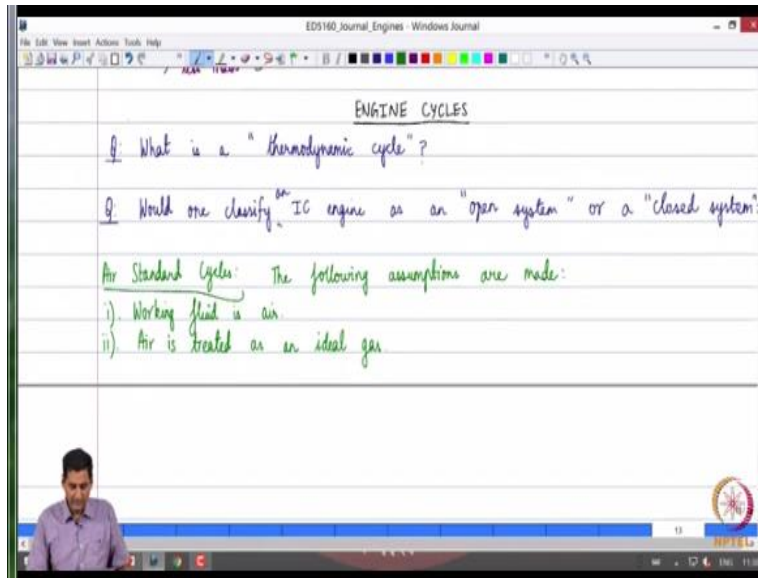 ED5160_Journal_Engines - Windows Journal
File Edit View Insert Actions Tools Help
ENGINE CYCLES
Q: What is a "thermodynamic cycle"?
Q: Would one classify an IC engine as an "open system" or a "closed system"
Air Standard Cycles: The following assumptions are made:
i). Working fluid is air.
ii). Air is treated as an ideal gas.
13
NPTEL
ENG